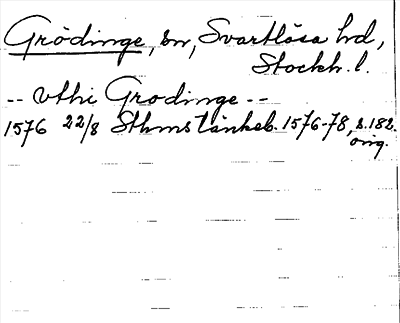 Grödinge, sn, Svartlösa hd,
Stockh. l.
-- vthi Grodinge --
1576 22/8 Sthms tänkeb. 1576-78, s. 182.
orig.